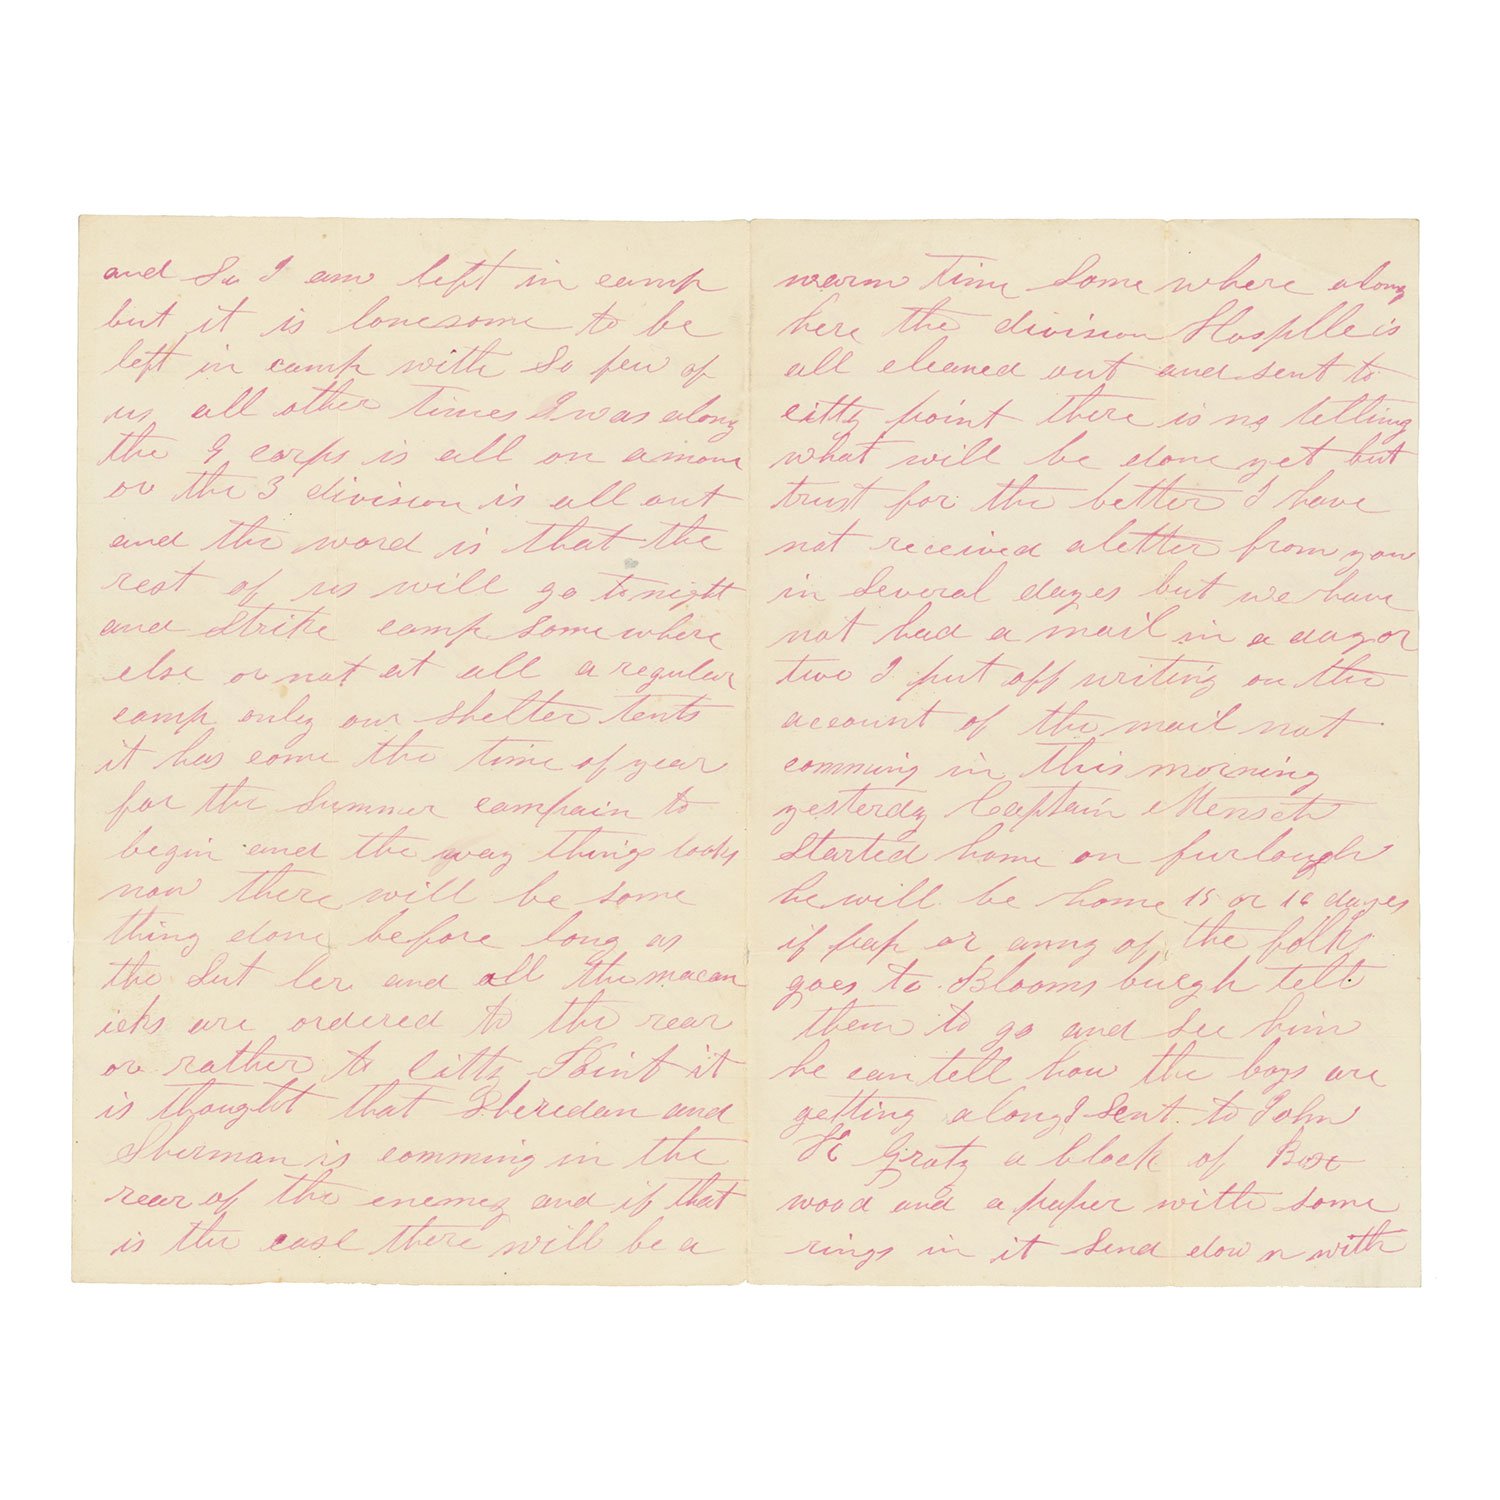 and So I am left in camp
but it is lonesome to be
left in camp with So few of
us all other times I was along
the 9 corps is all on amove
ov the 3 division is all out
and the word is that the
rest of us will go tonight
and Strike camp Somewhere
else ov not at all a regular
camp only our Shelter tents
it has come the time of year
for the Summer campain to
begin and the way things looks
now there will be some
thing done before long as
the Sut ler and all the macan
icks are ordered to the rear
ov rather to Citty Point it
is thought that Sheredan and
Sherman is comming in the
rear of the enemey and if that
is the case there will be a
warm time Some where along
here the division Hosplle is
all cleaned out and sent to
citty point there is no telling
what will be done yet but
trust for the better I have
not received aletter from you
in Several dayes but we have
not had a mail in a day or
two I put off writing on the
account of the mail not
comming in this morning
yesterdy Captain Mensch
Started home on furlough
he will be home 15 or 16 dayes
if pap or anny of the folks
goes to Blooms burgh tell
them to go and See him
he can tell how the boys are
getting along I Sent to John
H Gratz a block of Box
wood and a paper with some
rings in it Send dow n with